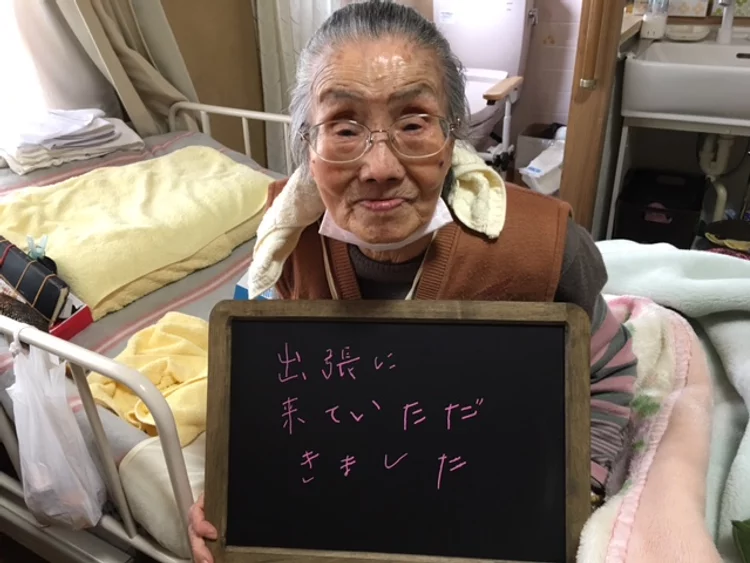 出張に
来ていただ
きました